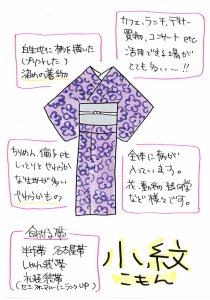 白生地に柄を描いた
(プリントした)
染めの着物
カフェ、ランチ、デート
買物、コンサート etc
活用できる場が
とても多い〜!!
ちりめん、倫子 etc
しっとりとやわらか
な生地が多い
やわらかもの
全体に柄が
入っています。
花、動物、幾何学
など様々です。
合わせる帯
半巾帯 名古屋帯
しゃれ袋帯
礼装袋帯
(セミフォーマルにランクUP)
小紋
こもん